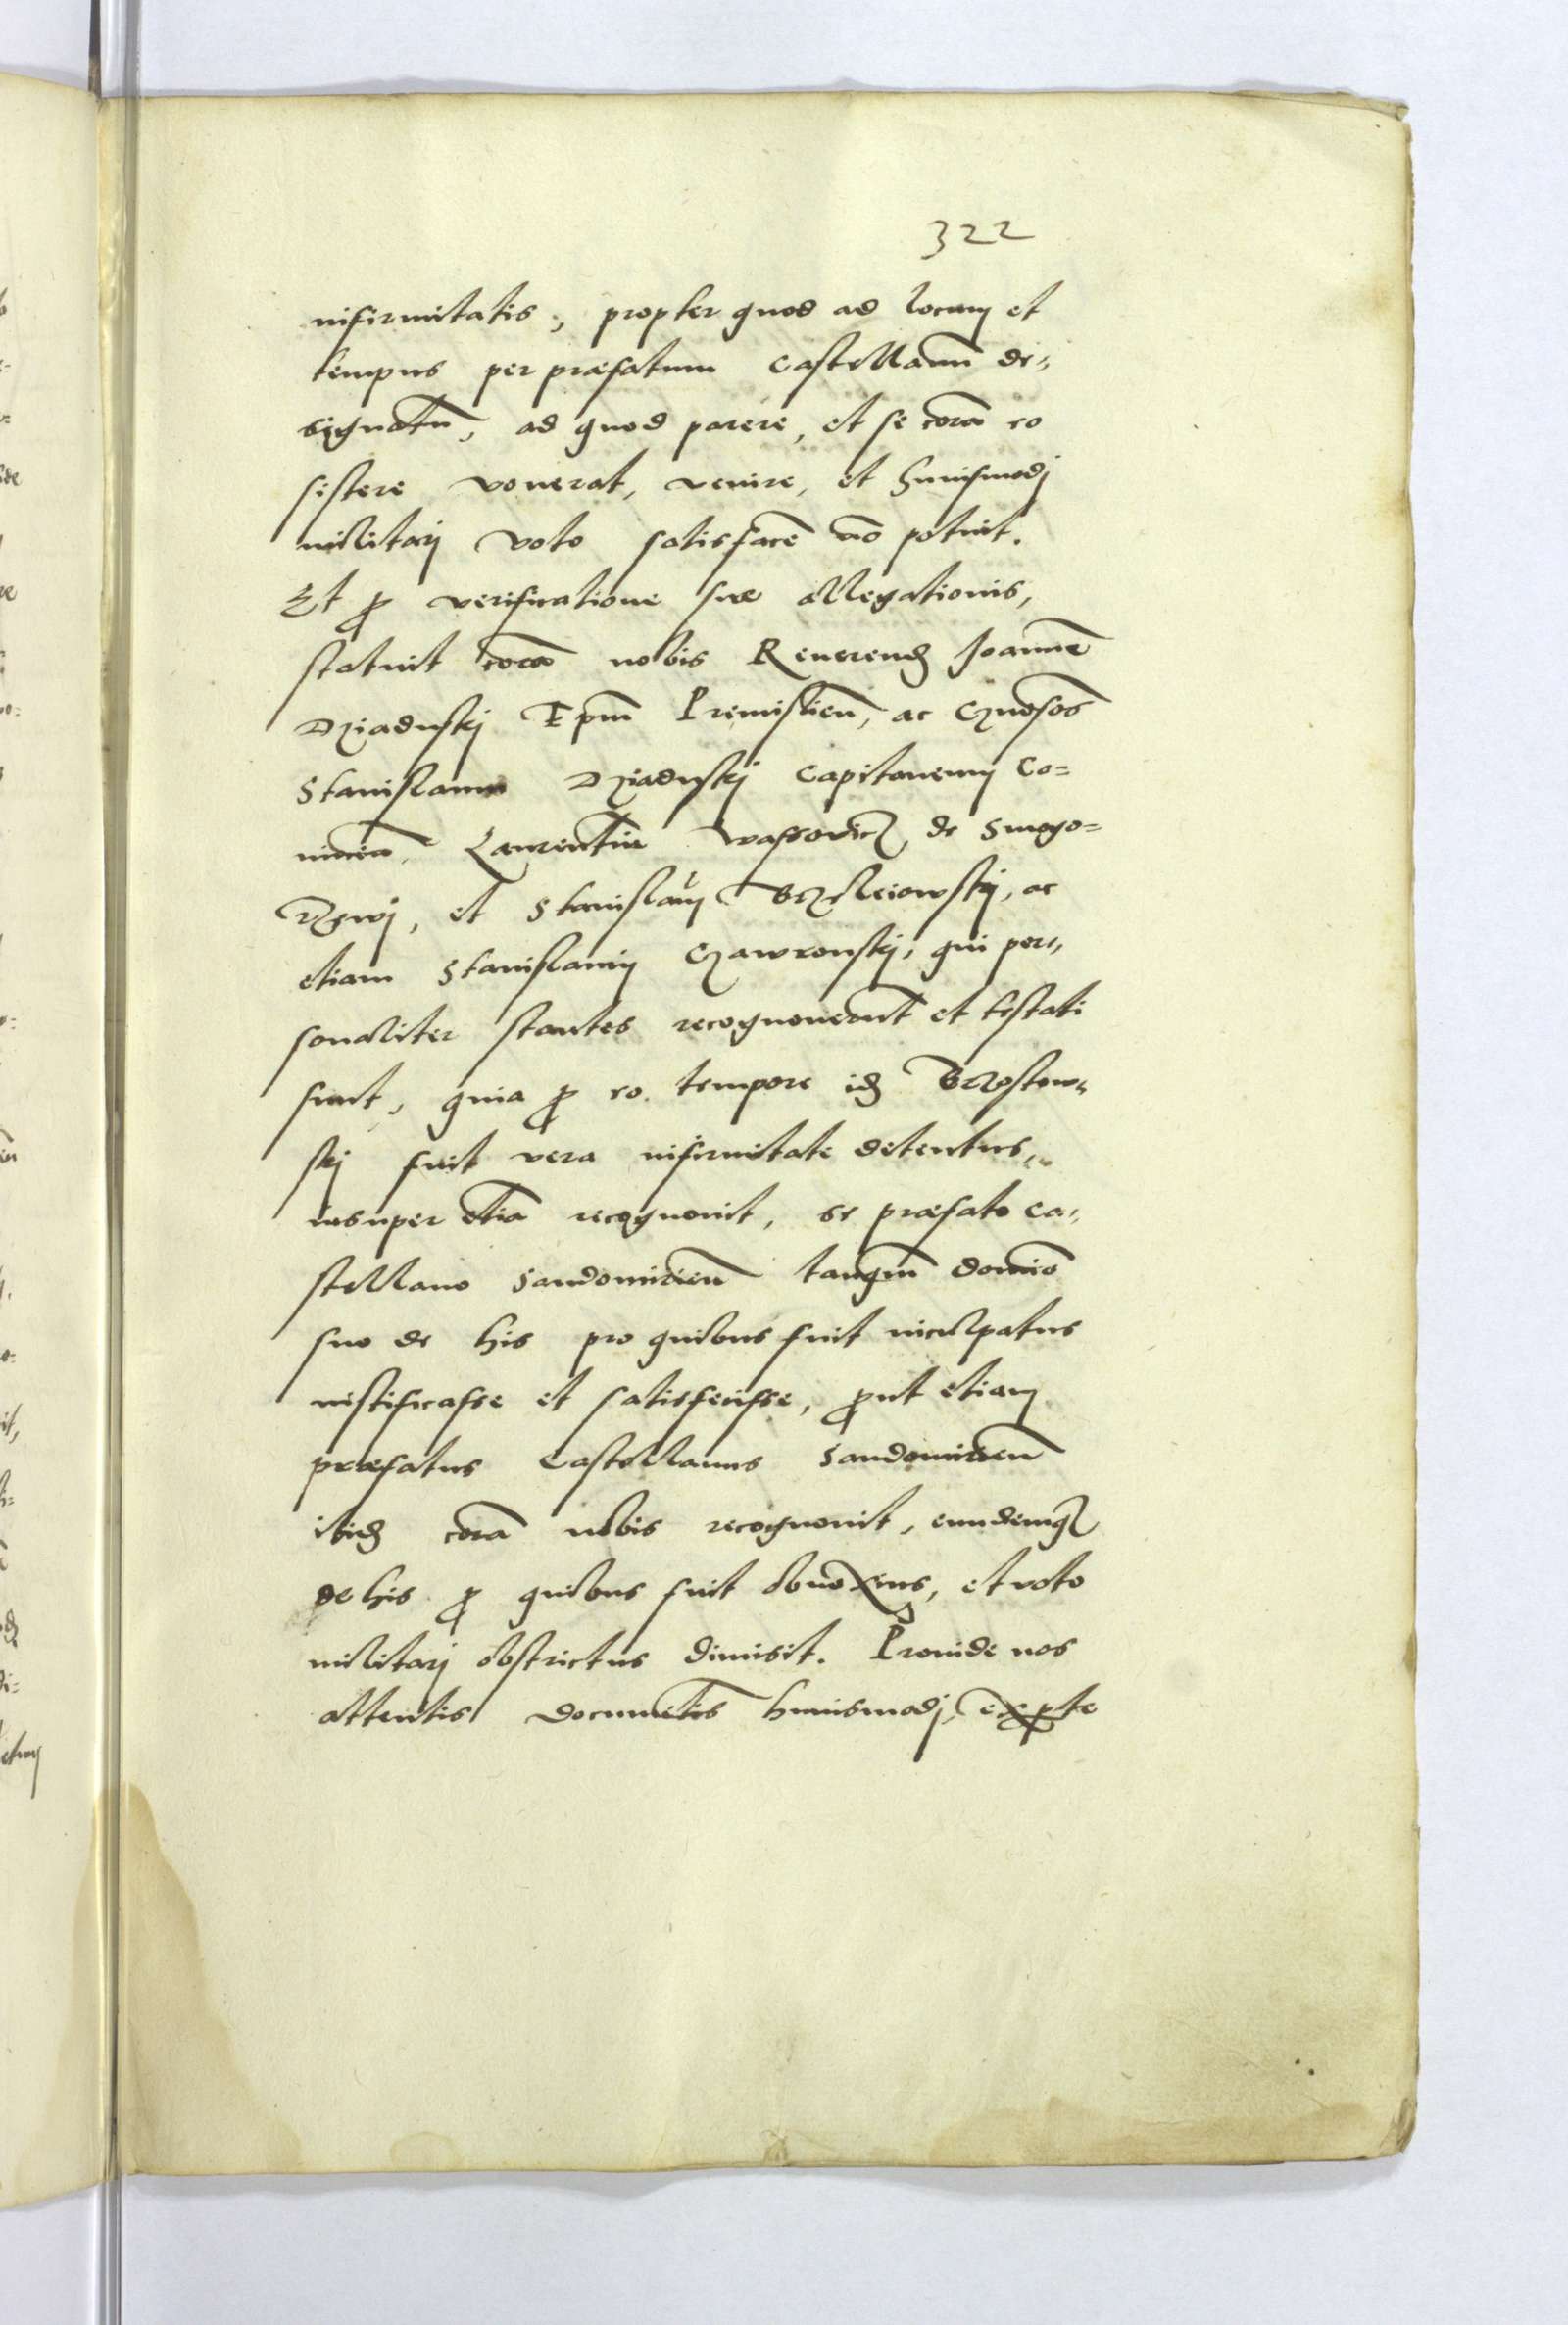 322
infirmitatis, propter quod ad locum et
tempus per præfatum Castellanū de,,
signatū, ad quod parere, et se corā eo
sistere vouerat, venire, et huiusmodj
militarj voto satisfacē nō potuit.
Et ꝓ verificatione suæ allegationis,
statuit corā nobis Reuerend Joannē
Dziaduskj Epm̄ Premislien̄, ac Gn̄osos
Stanislaum Dziaduskj Capitaneum Co=
nincen̄, Laurentiū Wassowicz de Smogo=
rzewj, et Stanislaum Brzesciowskj, ac
etiam Stanislaum Gawronskj, qui per,,
sonaliter stantes recognouerūt et testati
sunt, quia ꝓ eo tempore idẽ Brzostow,,
skj fuit vera infirmitate detentus,
insuper etiā recognouit, se præfato Ca,,
stellano Sandomirien̄ tanqm̄ domīo
suo de his pro quibus fuit inculpatus
iustificasse et satisfecisse, ꝓut etiam
præfatus Castellanus Sandomirien̄
ibidẽ corā nobis recognouit, eundemqꝫ
de his ꝓ quibus fuit obnoxius, et voto
militarj obstrictus dimisit. Proinde nos
attentis documētis huiusmodj, ex ꝑte